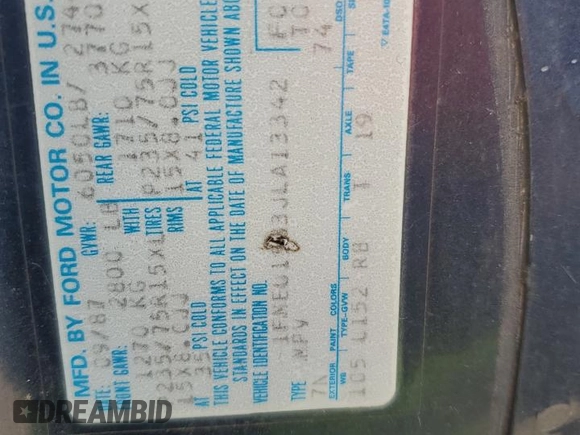 MFD. BY FORD MOTOR CO. IN U.S.
09/87 GVWR: 6050LB/ 274
FRONT GAWR: 2800 LB REAR GAWR: 3770
1270 KG WITH 1710 KG
235/75R15XL TIRES P235/75R15X
15X8.0JJ RIMS 15X8.0JJ
AT 35 PSI COLD AT 41 PSI COLD
THIS VEHICLE CONFORMS TO ALL APPLICABLE FEDERAL MOTOR VEHICLE
STANDARDS IN EFFECT ON THE DATE OF MANUFACTURE SHOWN ABOV
VEHICLE IDENTIFICATION NO.
JLA13342
TYPE MPV
74
EXTERIOR PAINT COLORS DSO
WB TYPE-GVW BODY TRANS AXLE TAPE
105 L152 RB T 19
DREAMBID